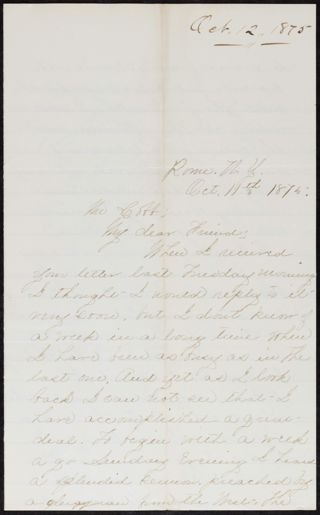 Oct. 12, 1875
Rome. N. Y.
Oct. 11th 1875.
Mr Cobb;
My dear Friend;
When I received
your letter last Tuesday morning
I thought I would reply to it
very soon. but I dont know of
a week in a long time when
I have been as busy as in the
last one. And yet as I look
back I can not see that I
have accomplished a great
deal. To begin with a week
a go Sunday Evening I heard
a splendid sermon preached by
a clergyman from the